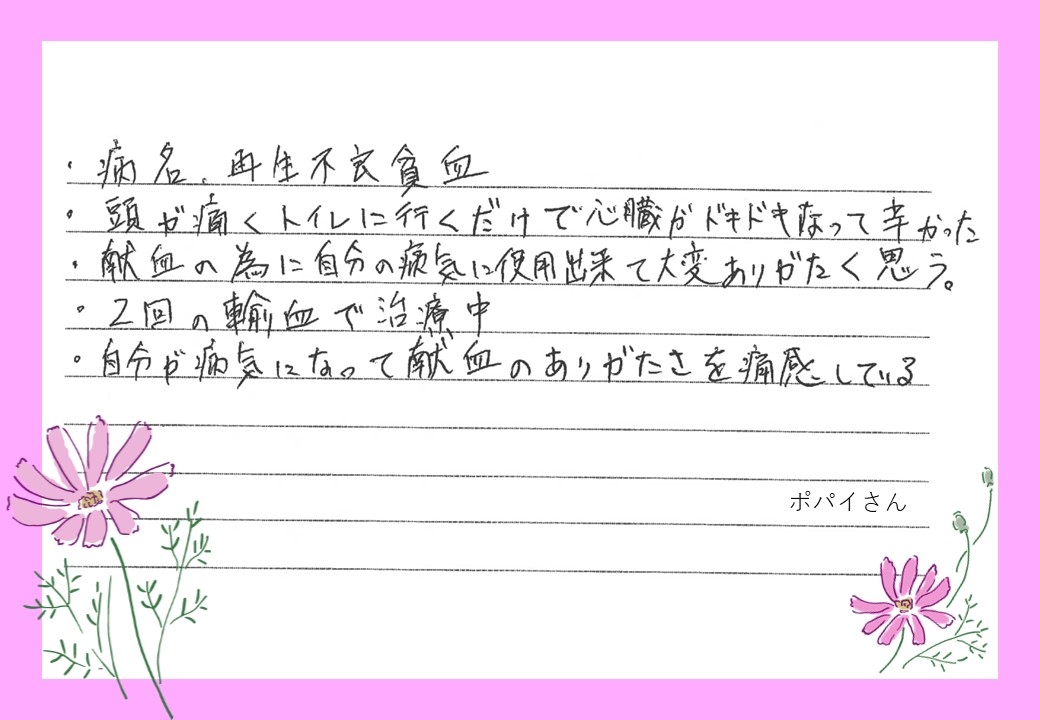 ・病名、再生不良貧血
・頭が痛くトイレに行くだけで心臓がドキドキなって辛かった
・献血の為に自分の病気に使用出来て大変ありがたく思う。
・2回の輸血で治療中
・自分が病気になって献血のありがたさを痛感している
ポパイさん